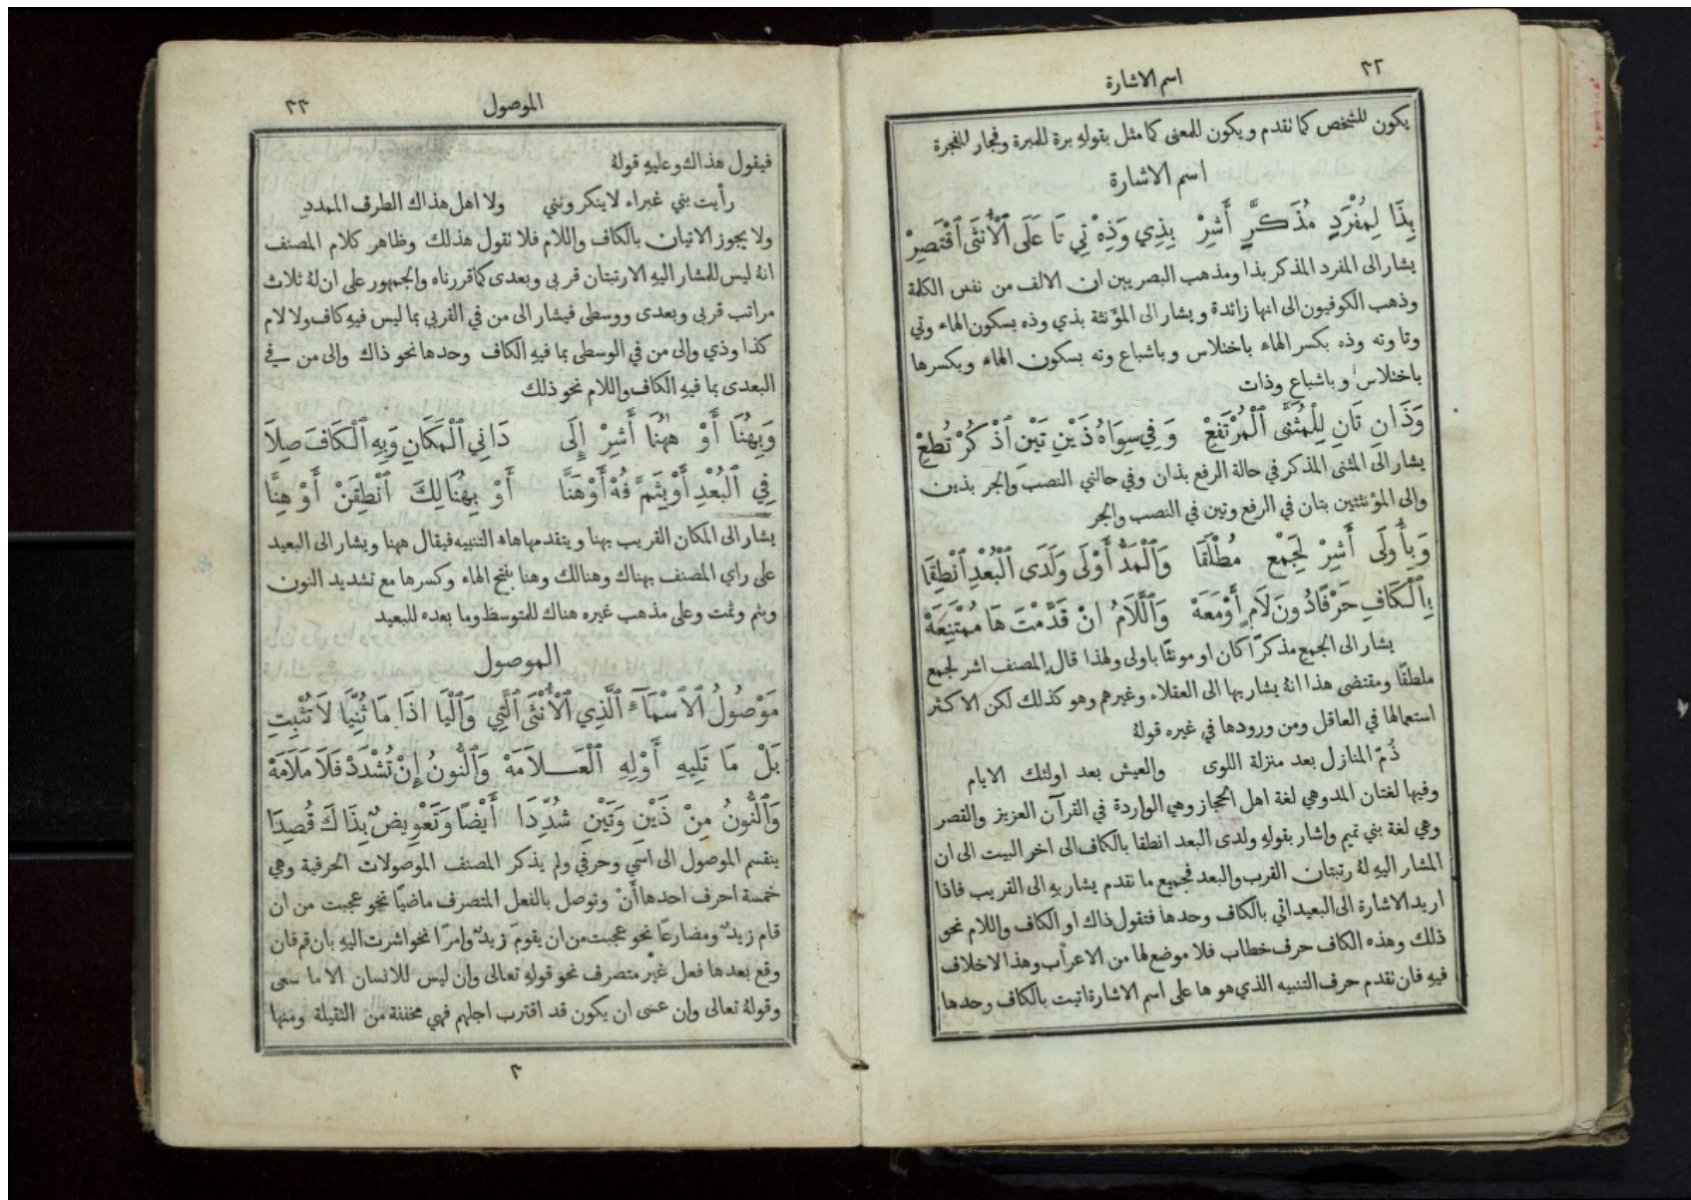 ٣٢
اسم الاشارة
يكون للشخص كما تقدم ويكون للمعنى كما مثل بقولهِ برة للمبرة وفجار للفجرة
اسم الاشارة
بِذَا لِمُفْرَدٍ مُذَكَّرٍ أَشِرْ بِذِي وَذِهْ تِي تَا عَلَى ٱلْأُنْثَى ٱقْتَصِرْ
يشار الى المفرد المذكر بذا ومذهب البصريين ان الالف من نفس الكلمة
وذهب الكوفيون الى انها زائدة ويشار الى المؤنثة بذي وذه بسكون الهاء وتي
وتا وته وذه بكسر الهاء باختلاس وباشباع وته بسكون الهاء وبكسرها
باختلاس وباشباع وذات
وَذَانِ تَانِ لِلْمُثَنَّى ٱلْمُرْتَفِعْ وَفِي سِوَاهُ ذَيْنِ تَيْنِ ٱذْكُرْ تُطِعْ
يشار الى المثنى المذكر في حالة الرفع بذان وفي حالتي النصب والجر بذين
والى المؤنثتين بتان في الرفع وتين في النصب والجر
وَبِأُولَى أَشِرْ لِجَمْعٍ مُطْلَقَا وَٱلْمَدُّ أَوْلَى وَلَدَى ٱلْبُعْدِ ٱنْطِقَا
بِٱلْكَافِ حَرْفًا دُونَ لَامٍ أَوْ مَعَهْ وَٱللَّامُ انْ قَدَّمْتَ هَا مُمْتَنِعَهْ
يشار الى الجمع مذكرًا كان او مونثًا باولى ولهذا قال المصنف اشر لجمع
ملطقًا ومقتضى هذا انهُ يشار بها الى العقلاء وغيرهم وهو كذلك لكن الاكثر
استعمالها في العاقل ومن ورودها في غيره قولهُ
ذُمّ المنازل بعد منزلة اللوى والعيش بعد اولئك الايام
وفيها لغتان المد وهي لغة اهل الحجاز وهي الواردة في القرآن العزيز والقصر
وهي لغة بني تميم واشار بقولهِ ولدى البعد انطقا بالكاف الى اخر البيت الى ان
المشار اليهِ لهُ رتبتان القرب والبعد فجميع ما تقدم يشار بهِ الى القريب فاذا
اريد الاشارة الى البعيد اتي بالكاف وحدها فتقول ذاك او الكاف واللام نحو
ذلك وهذه الكاف حرف خطاب فلا موضع لها من الاعراب وهذا لاخلاف
فيهِ فان تقدم حرف التنبيه الذي هو ها على اسم الاشارة اتيت بالكاف وحدها
٣٣
الموصول
فيقول هذاك وعليهِ قولهُ
رأيت بني غبراء لاينكرونني ولا اهل هذاك الطرف الممددِ
ولا يجوز الاتيان بالكاف واللام فلا تقول هذلك وظاهر كلام المصنف
انهُ ليس للمشار اليهِ الا رتبتان قربى وبعدى كما قررناه والجمهور على ان لهُ ثلاث
مراتب قربى وبعدى ووسطى فيشار الى من في القربى بما ليس فيهِ كاف ولا لام
كذا وذي والى من في الوسطى بما فيهِ الكاف وحدها نحو ذاك والى من في
البعدى بما فيهِ الكاف واللام نحو ذلك
وَبِهُنَا أَوْ هٰهُنَا أَشِرْ إِلَى دَانِي ٱلْمَكَانِ وَبِهِ ٱلْكَافَ صِلَا
فِي ٱلْبُعْدِ أَوْ بِثَمَّ فُهْ أَوْ هَنَّا أَوْ بِهُنَالِكَ ٱنْطِقَنْ أَوْ هِنَّا
يشار الى المكان القريب بهنا ويتقدمها هاء التنبيه فيقال ههنا ويشار الى البعيد
على راي المصنف بهناك وهنالك وهنا بفتح الهاء وكسرها مع تشديد النون
وبثم وثمت وعلى مذهب غيره هناك للمتوسط وما بعده للبعيد
الموصول
مَوْصُولُ ٱلْاسْمَآءَ ٱلَّذِي ٱلْأُنْثَى ٱلَّتِي وَٱلْيَا اذَا مَا ثُنِّيَا لَا تُثْبِتِ
بَلْ مَا تَلِيهِ أَوْلِهِ ٱلْعَلَامَهْ وَٱلنُّونُ إِنْ تُشْدَدْ فَلَا مَلَامَهْ
وَٱلنُّونُ مِنْ ذَيْنِ وَتَيْنِ شُدِّدَا أَيْضًا وَتَعْوِيضٌ بِذَاكَ قُصِدَا
ينقسم الموصول الى اسمي وحرفي ولم يذكر المصنف الموصولات الحرفية وهي
خمسة احرف احدها أَنْ وتوصل بالفعل المتصرف ماضيًا نحو عجبت من ان
قام زيدٌ ومضارعًا نحو عجبت من ان يقومَ زيدٌ وامرًا نحو اشرت اليهِ بان قم فان
وقع بعدها فعل غير متصرف نحو قولهِ تعالى وان ليس للانسان الا ما سعى
وقولهُ تعالى وان عسى ان يكون قد اقترب اجلهم فهي مخففة من الثقيلة ومنها
٣